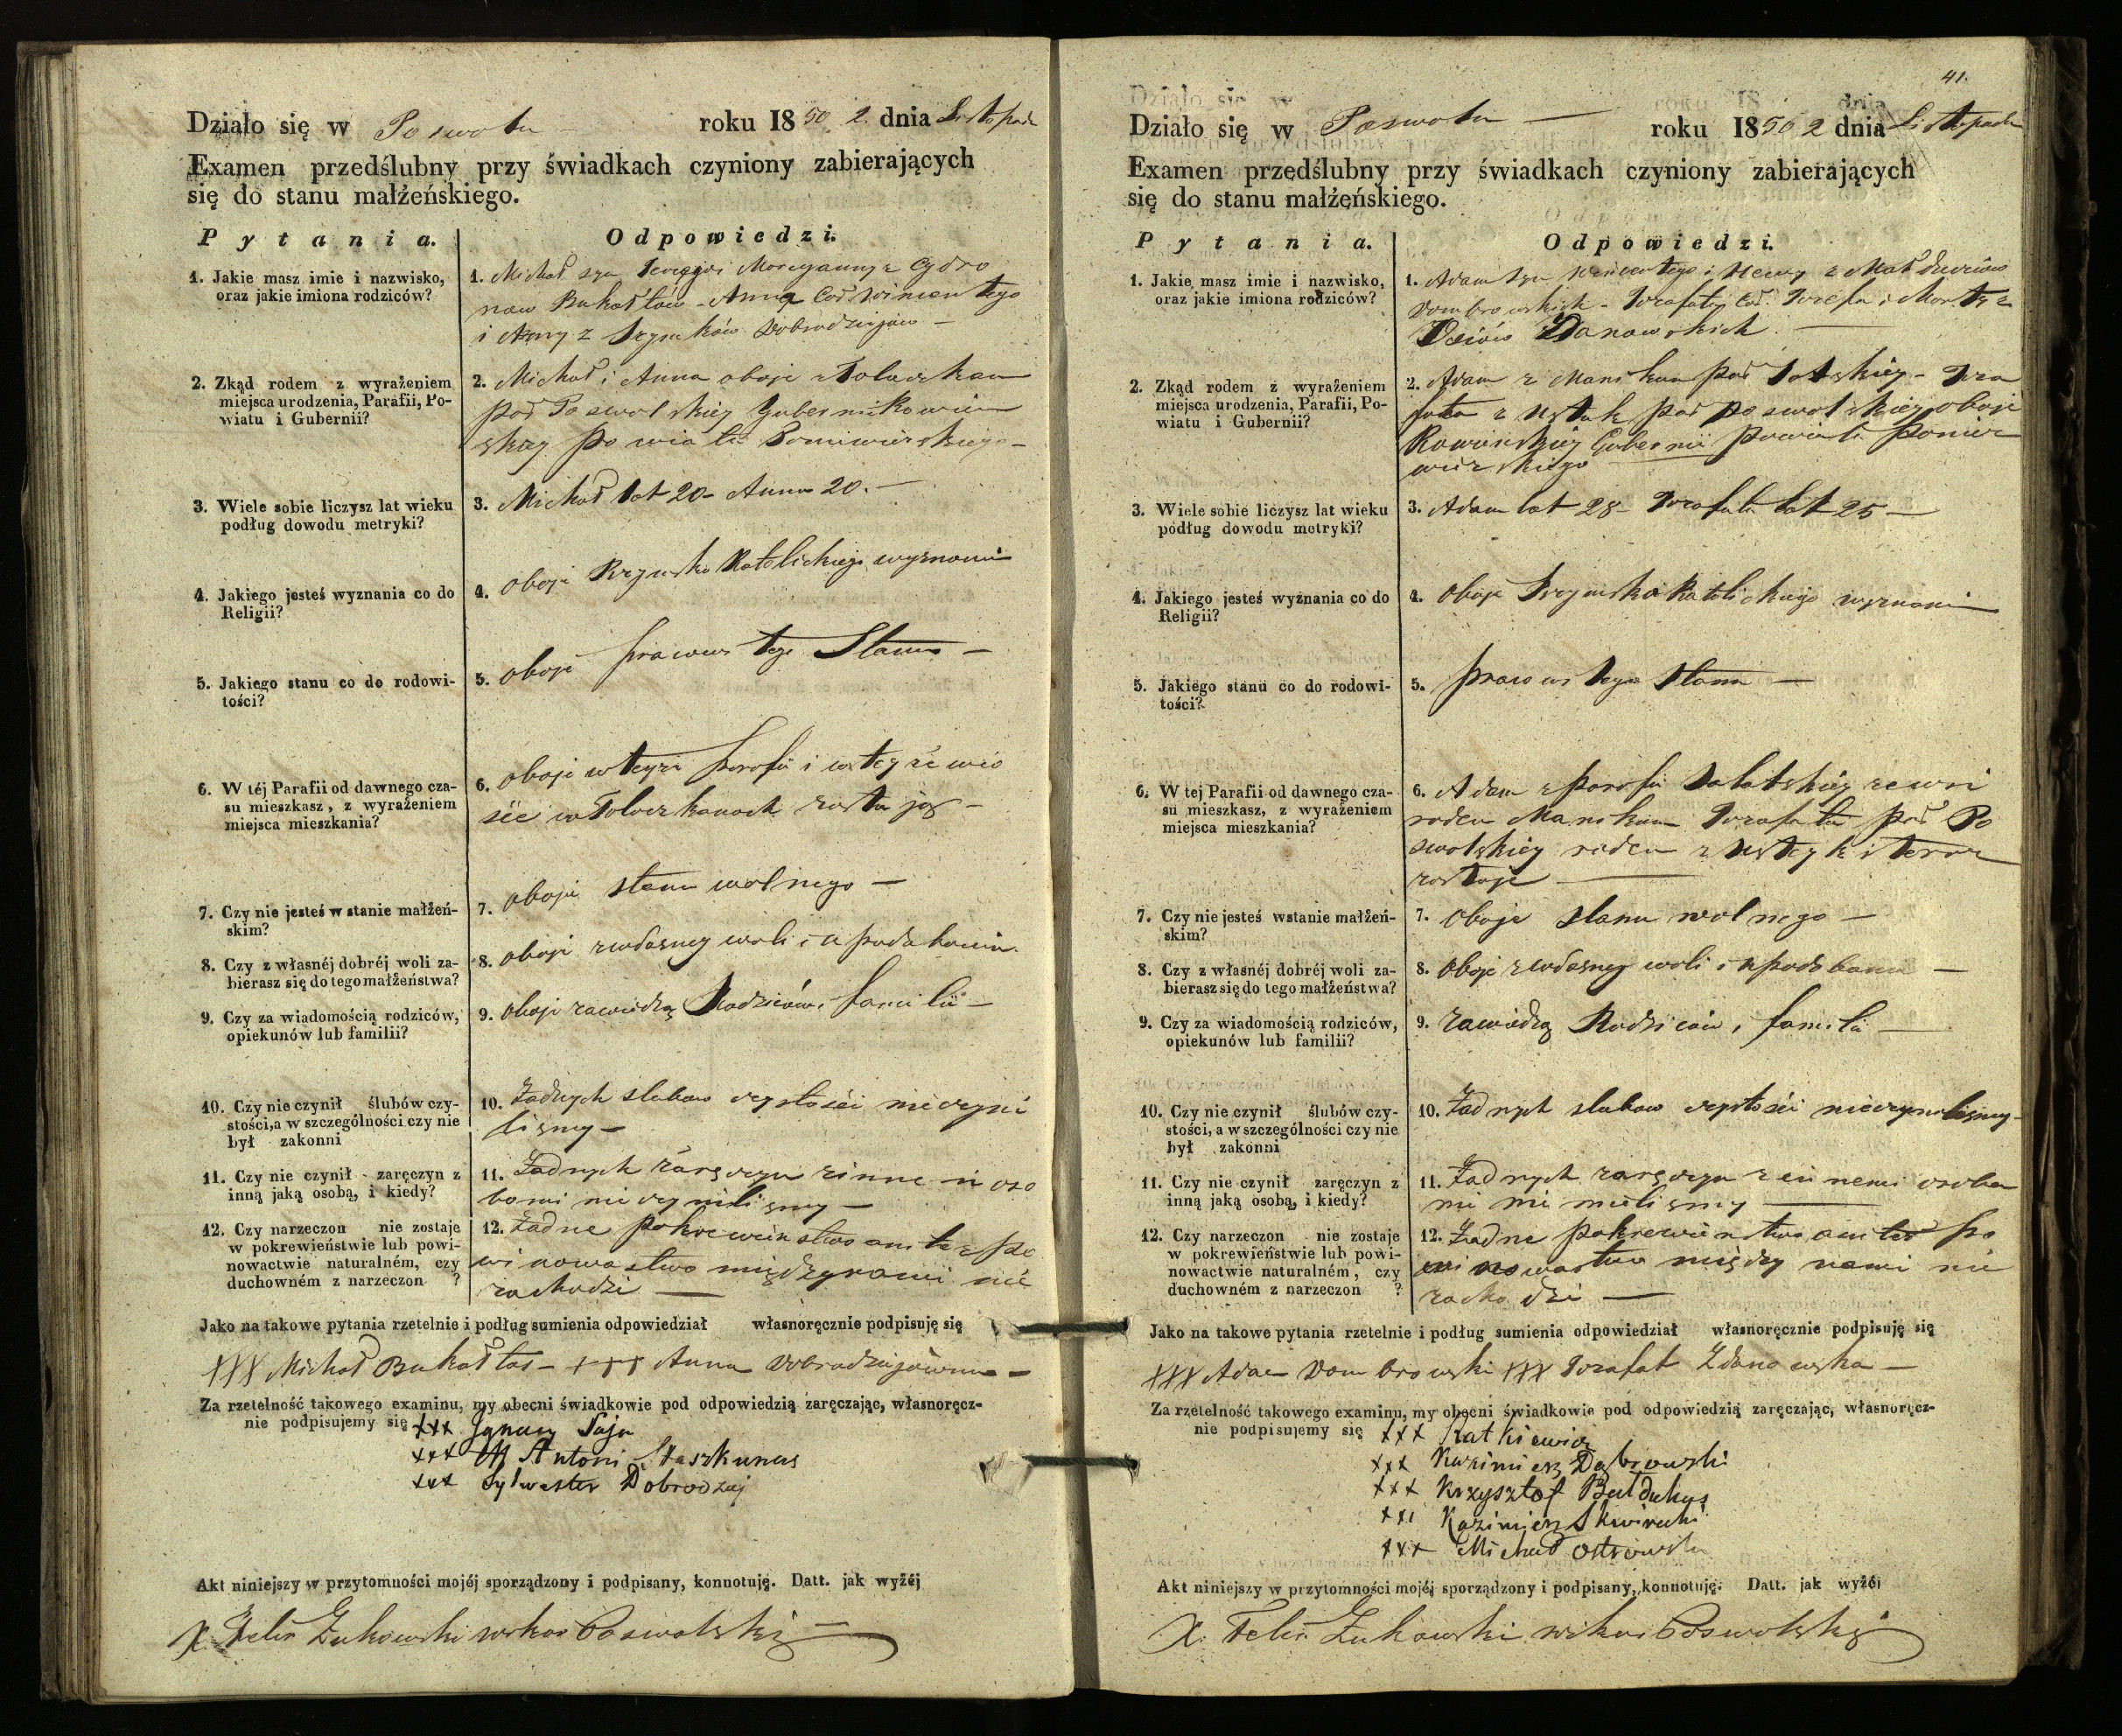 Działo się w Poswolu roku 1850 2 dnia Listopada
Examen przedślubny przy świadkach czyniony zabierających
się do stanu małżeńskiego.
Pytania. Odpowiedzi.
1. Jakie masz imie i nazwisko,
oraz jakie imiona rodziców?
1. Michał syn Maryanny z
Bukałłów - Anna Cór Wincentego
i Anny z Dobrodziejow -
2. Zkąd rodem z wyrażeniem
miejsca urodzenia, Parafii, Po-
wiatu i Gubernii?
2. Michał i Anna oboje z Toloczkan
par Poswolskiey Guberni Kowien
skiey powiatu Poniwieżskiego -
3. Wiele sobie liczysz lat wieku
podług dowodu metryki?
3. Michał lat 20 - Anna 20. -
4. Jakiego jesteś wyznania co do
Religii?
4. oboje Rzymsko Katolickiego wyznania
5. Jakiego stanu co do rodowi-
tości?
5. oboje prawego Stanu -
6. W téj Parafii od dawnego cza-
su mieszkasz, z wyrażeniem
miejsca mieszkania?
6. oboje w teyże parafii i w teyże wio
sce w Toloczkanach zostają -
7. Czy nie jesteś w stanie małżeń-
skim?
7. oboje stanu wolnego -
8. Czy z własnéj dobréj woli za-
bierasz się do tego małżeństwa?
8. oboje z własney woli i upodobania.
9. Czy za wiadomością rodziców,
opiekunów lub familii?
9. oboje za wiedzą Rodziców i familii -
10. Czy nie czynił ślubów czy-
stości, a w szczególności czy nie
był zakonni
10. Żadnych slubow czystości nie czyni
liśmy -
11. Czy nie czynił zaręczyn z
inną jaką osobą, i kiedy?
11. Żadnych zaręczyn z inne mi oso
bami nie czyniliśmy -
12. Czy narzeczon nie zostaje
w pokrewieństwie lub powi-
nowactwie naturalném, czy
duchowném z narzeczon ?
12. Żadne pokrewieństwo ani też po
winowactwo między nami nie
zachodzi -
Jako na takowe pytania rzetelnie i podług sumienia odpowiedział własnoręcznie podpisuję się
XXX Michał Bukałłas - XXX Anna Dobrodziejówna -
Za rzetelność takowego examinu, my obecni świadkowie pod odpowiedzią zaręczając, własnoręcz-
nie podpisujemy się xxx Ignacy Soja
xxx Antoni Staszkunas
xxx Sylwester Dobrodziej
Akt niniejszy w przytomności mojéj sporządzony i podpisany, konnotuję. Datt. jak wyżéj
X. Felix Żukowski wikar Poswolski
41.
Działo się w Poswolu - roku 1850 2 dnia Listopada
Examen przedślubny przy świadkach czyniony zabierających
się do stanu małżeńskiego.
Pytania. Odpowiedzi.
1. Jakie masz imie i nazwisko,
oraz jakie imiona rodziców?
1. Adam syn Wincentego i z
Dombrowskich - Jozafata Cór. Jozefa i Marty z
Zdanowskich -
2. Zkąd rodem z wyrażeniem
miejsca urodzenia, Parafii, Po-
wiatu i Gubernii?
2. Adam z par - Joza
fata z Ustuk par poswolskiey oboje
Kowieńskiey Gubernii powiatu poniw
wieżskiego
3. Wiele sobie liczysz lat wieku
podług dowodu metryki?
3. Adam lat 28 - Jozafata lat 25 -
4. Jakiego jesteś wyznania co do
Religii?
4. oboje Rzymsko Katolickiego wyznania
5. Jakiego stanu co do rodowi-
tości?
5. prawego Stanu -
6. W tej Parafii od dawnego cza-
su mieszkasz, z wyrażeniem
miejsca mieszkania?
6. Adam z Parafii
rodem Jozafata par Po
swolskiey rodem z i teraz
zostaje -
7. Czy nie jesteś wstanie małżeń-
skim?
7. Oboje stanu wolnego -
8. Czy z własnéj dobréj woli za-
bierasz się do tego małżeństwa?
8. oboje z własney woli i upodobania -
9. Czy za wiadomością rodziców,
opiekunów lub familii?
9. za wiedzą Rodziców i familii -
10. Czy nie czynił ślubów czy-
stości, a w szczególności czy nie
był zakonni
10. Żadnych slubow czystości nieczyniliśmy -
11. Czy nie czynił zaręczyn z
inną jaką osobą, i kiedy?
11. Żadnych zaręczyn z innemi osoba
mi nie mieliśmy -
12. Czy narzeczon nie zostaje
w pokrewieństwie lub powi-
nowactwie naturalném, czy
duchowném z narzeczon ?
12. Żadne pokrewieństwo ani też po
winowactwo między nami nie
zachodzi -
Jako na takowe pytania rzetelnie i podług sumienia odpowiedział własnoręcznie podpisuję się
XXX Adam Dombrowski XXX Jozafat Zdanowska -
Za rzetelność takowego examinu, my obecni świadkowie pod odpowiedzią zaręczając, własnoręcz-
nie podpisujemy się xxx
xxx Kazimierz Dąbrowski
xxx Krzysztof Bałdukas
xxx Kazimierz Skwirecki
xxx Michał Ostrowski
Akt niniejszy w przytomności mojéj sporządzony i podpisany, konnotuję. Datt. jak wyżéj
X. Felix Żukowski wikar Poswolski